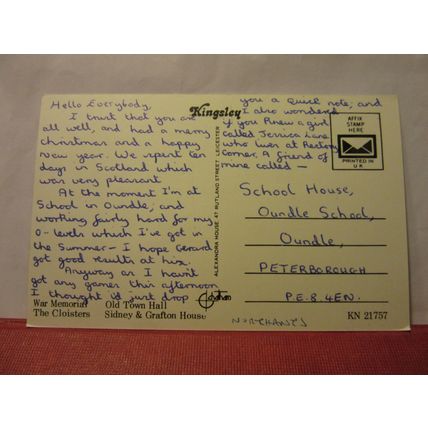 Hello Everybody,
I trust that you are
all well, and had a merry
christmas and a happy
new year. We spent ten
days in Scotland which
was very pleasant.
At the moment I'm at
School in Oundle, and
working fairly hard for my
O-levels which I've got in
the Summer - I hope Gerard
got good results at his.
Anyway as I haven't
got any games this afternoon
I thought i'd just drop
you a quick note, and
I also wondered
if you knew a girl
called Jessica Lane
who lives at Rectory
Corner, A friend of
mine called —
Kingsley
ALEXANDRA HOUSE 47 RUTLAND STREET LEICESTER
AFFIX
STAMP
HERE
PRINTED IN
U K
School House,
Oundle School,
Oundle,
PETERBOROUGH
P.E.8 4EN.
NORTHANTS
War Memorial Old Town Hall
The Cloisters Sidney & Grafton House
KN 21757